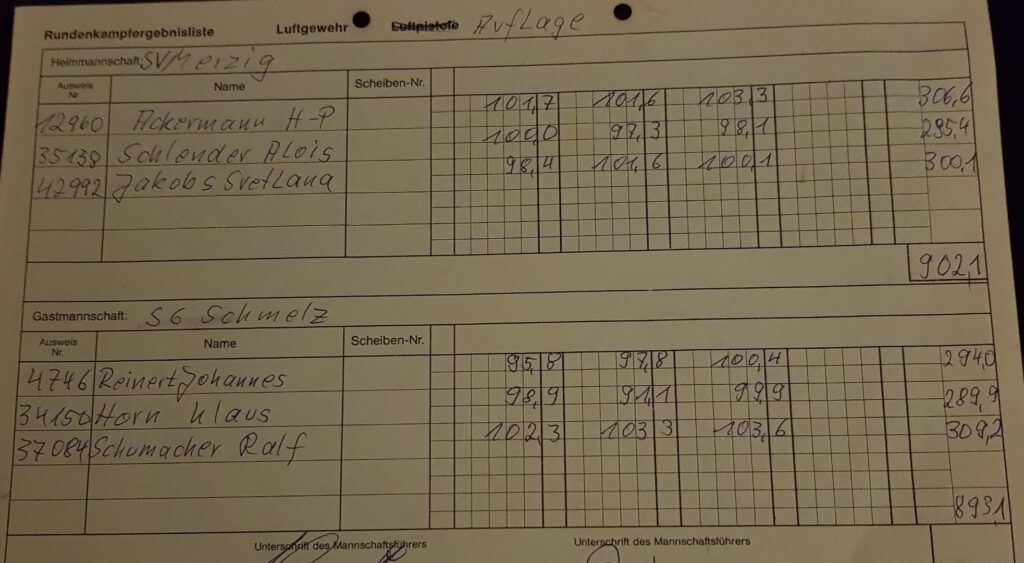 Rundenkampfergebnisliste Luftgewehr Luftpistole Auflage
Heimmannschaft: SV Merzig
Ausweis Nr. Name Scheiben-Nr.
12960 Ackermann H-P 101,7 101,6 103,3 306,6
35138 Schlender Alois 100,0 97,3 98,1 295,4
42992 Jakobs Svetlana 98,4 101,6 100,1 300,1
902,1
Gastmannschaft: SG Schmelz
Ausweis Nr. Name Scheiben-Nr.
4746 Reinert Johannes 95,8 97,8 100,4 294,0
34150 Horn Klaus 98,9 91,1 99,9 289,9
37084 Schumacher Ralf 102,3 103 3 103,6 309,2
893,1
Unterschrift des Mannschaftsführers Unterschrift des Mannschaftsführers